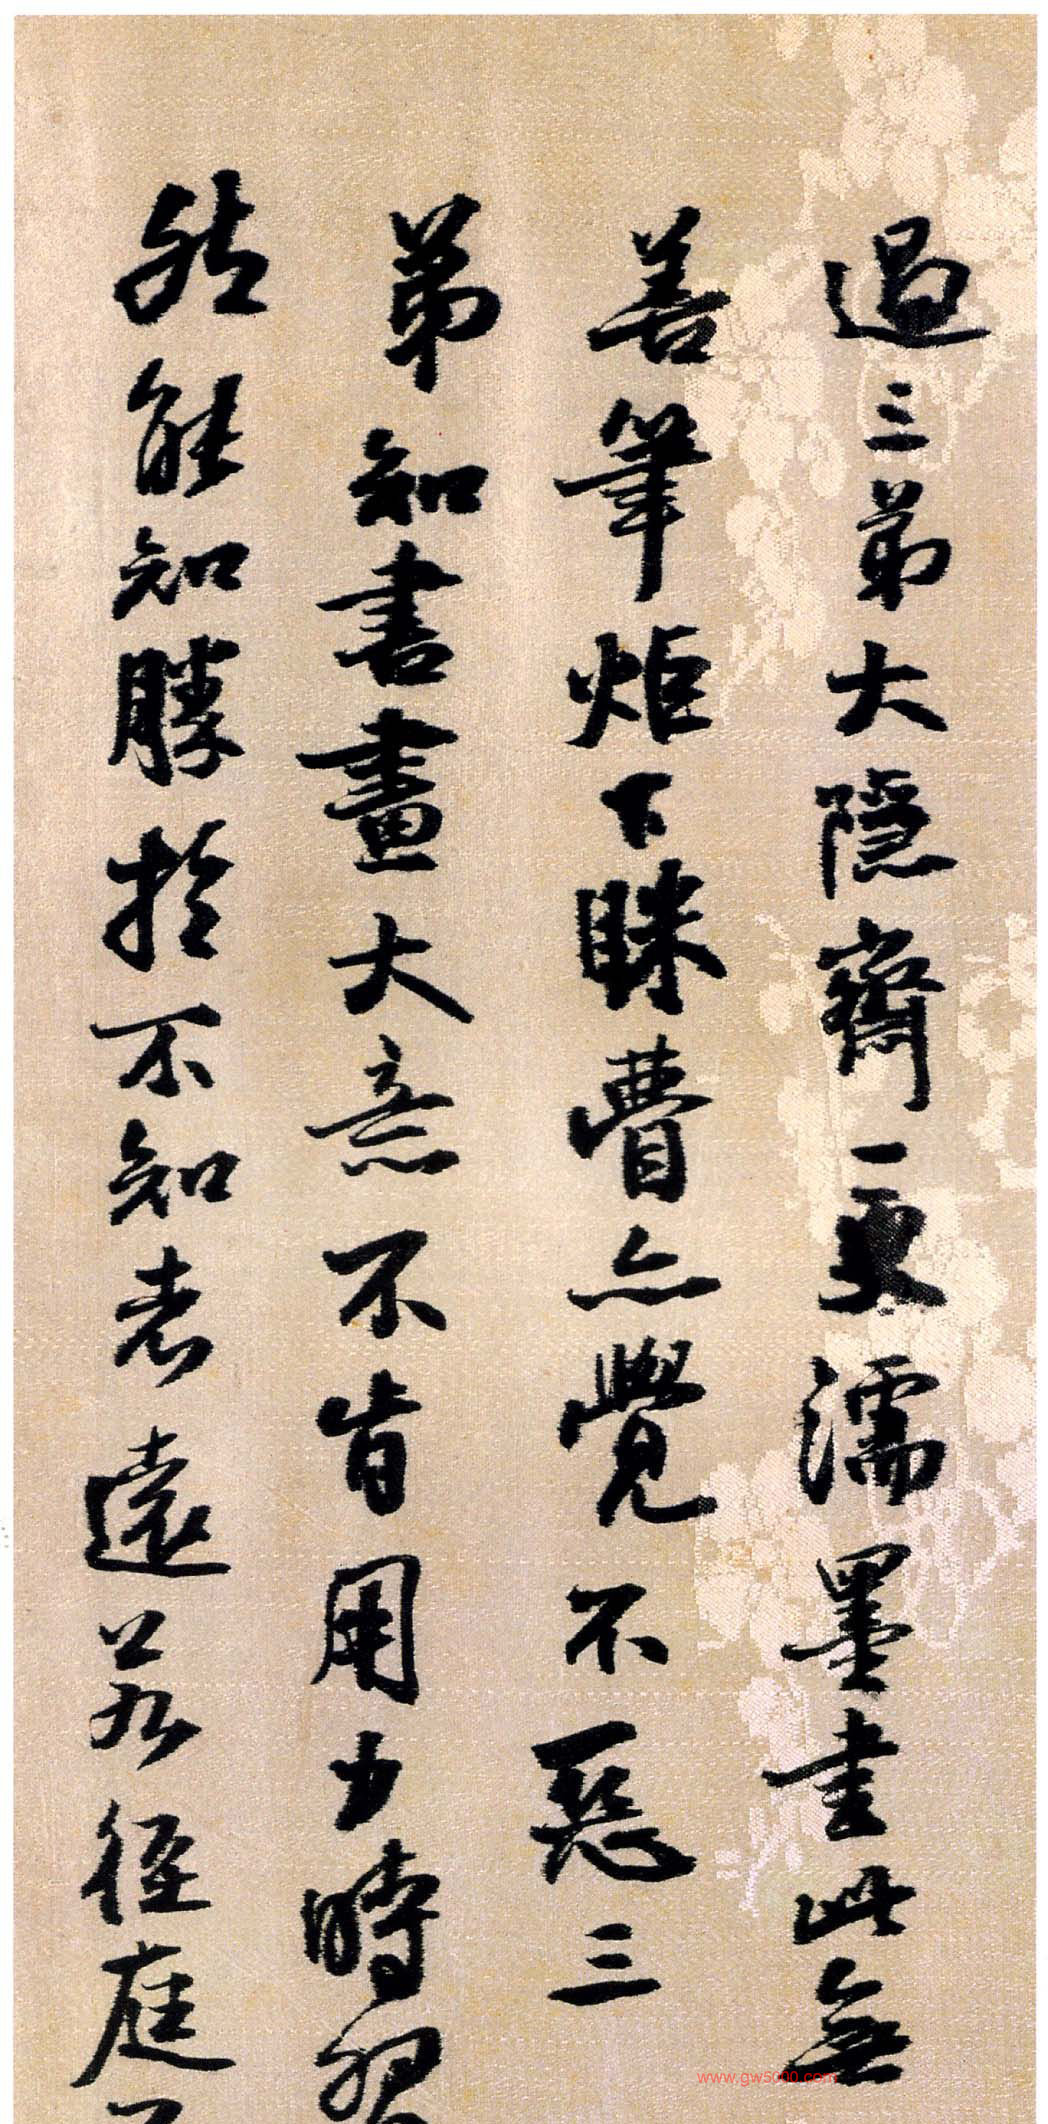 過三弟大隱齋一更濡墨書此無
善筆炬下眯瞢亦覺不惡三
弟知書畫大意不肯用力時習
然能知勝於不知者遠若徑庭
www.gw5000.com